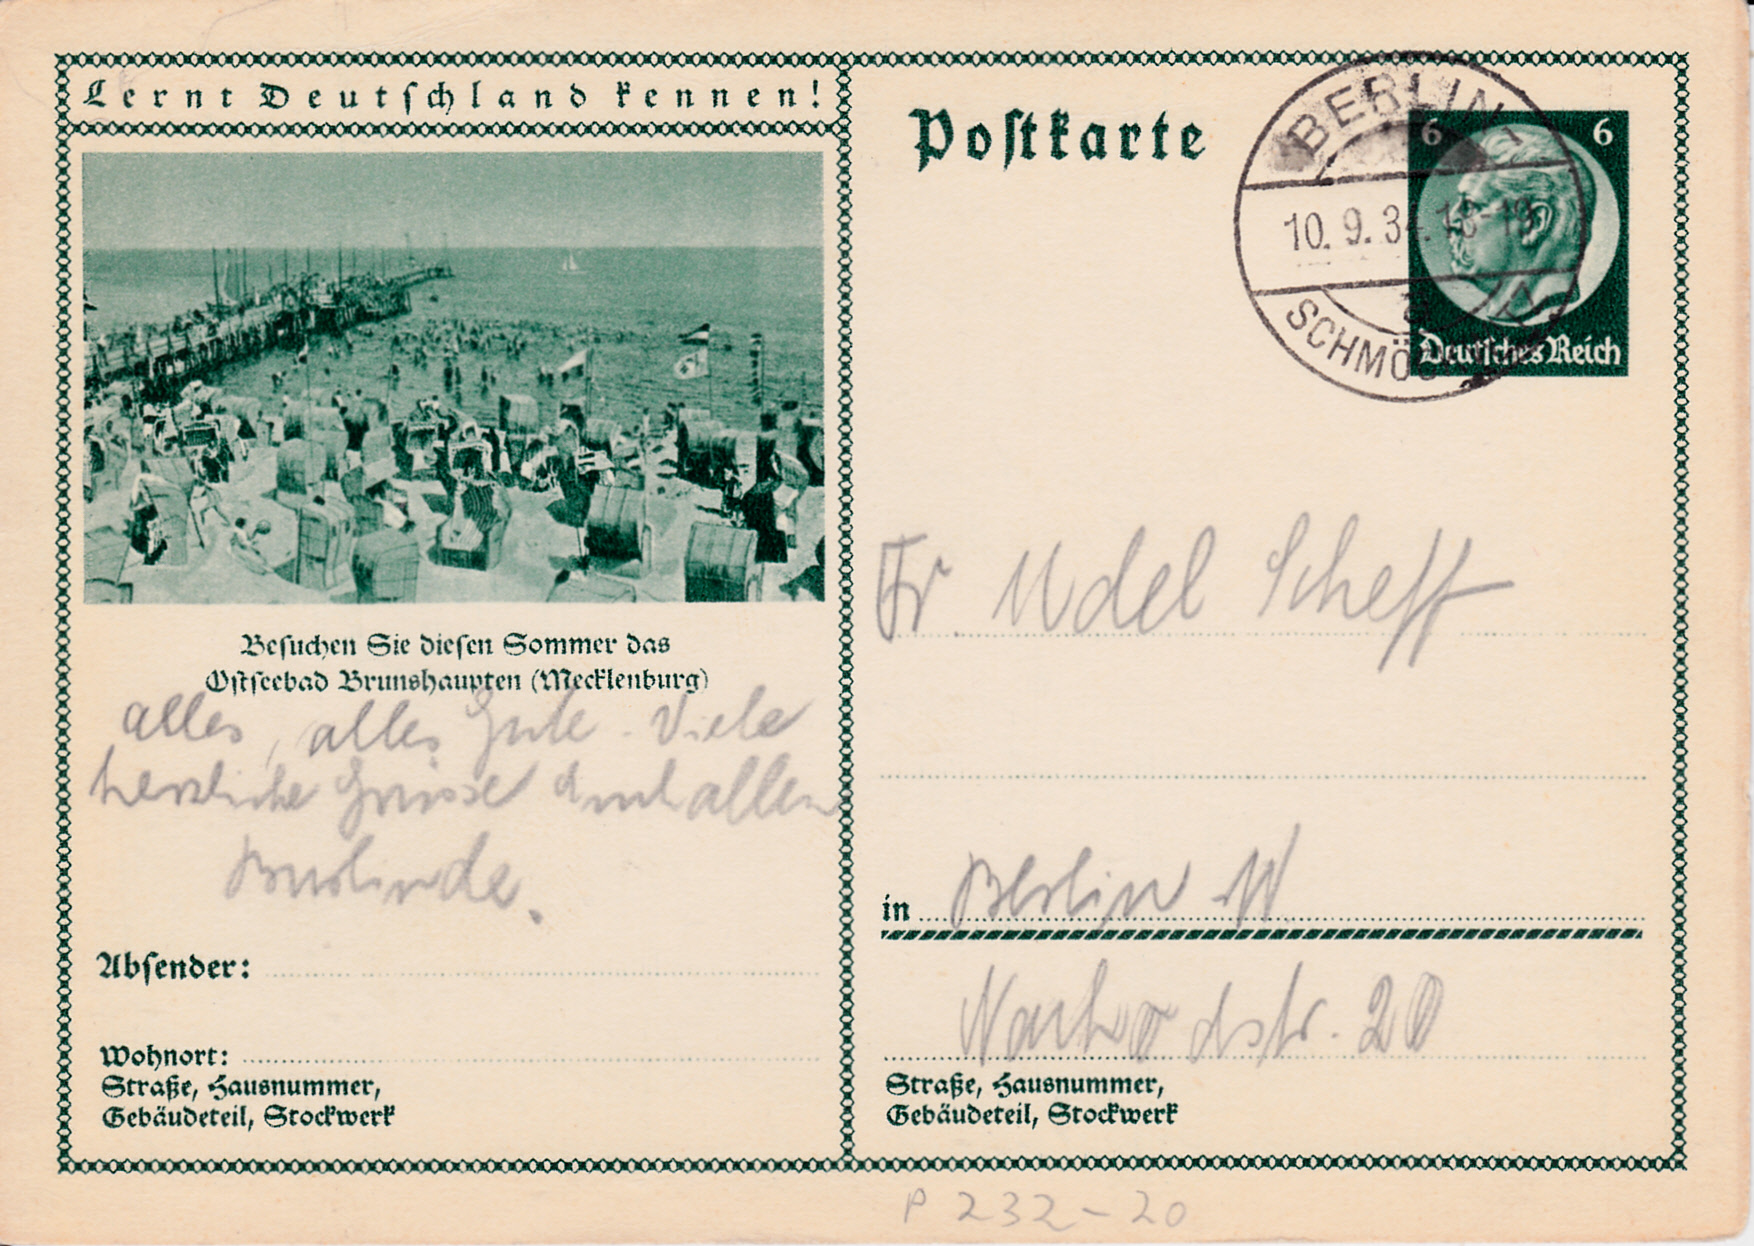 Lernt Deutschland kennen!
Besuchen Sie diesen Sommer das
Ostseebad Brunshaupten (Mecklenburg)
alles, alles Gute. Viele
herzliche Grüsse Euch allen
Absender:
Wohnort:
Straße, Hausnummer,
Gebäudeteil, Stockwerk
Postkarte
BERLIN
10.9.34.18-19
SCHMÖ
6 6
Deutsches Reich
Fr. Udel Scheff
in Berlin W
Nachodstr. 20
Straße, Hausnummer,
Gebäudeteil, Stockwerk
P 232-20